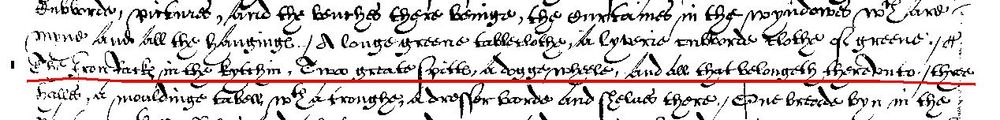 Cubborde, pictures, and the benches there beinge, the curtaines in the wyndowes wch are
myne and all the hangings./ A longe greene tableclothe, a lyverie cubborde clothe of greene./
The Iron Jacke in the kytchin, Twoo greate spitts, a dogge wheele, and all that belongeth thereunto./ three
a mouldinge table, wth a troughe, a dresser borde and shelves there./ One breade byn in the